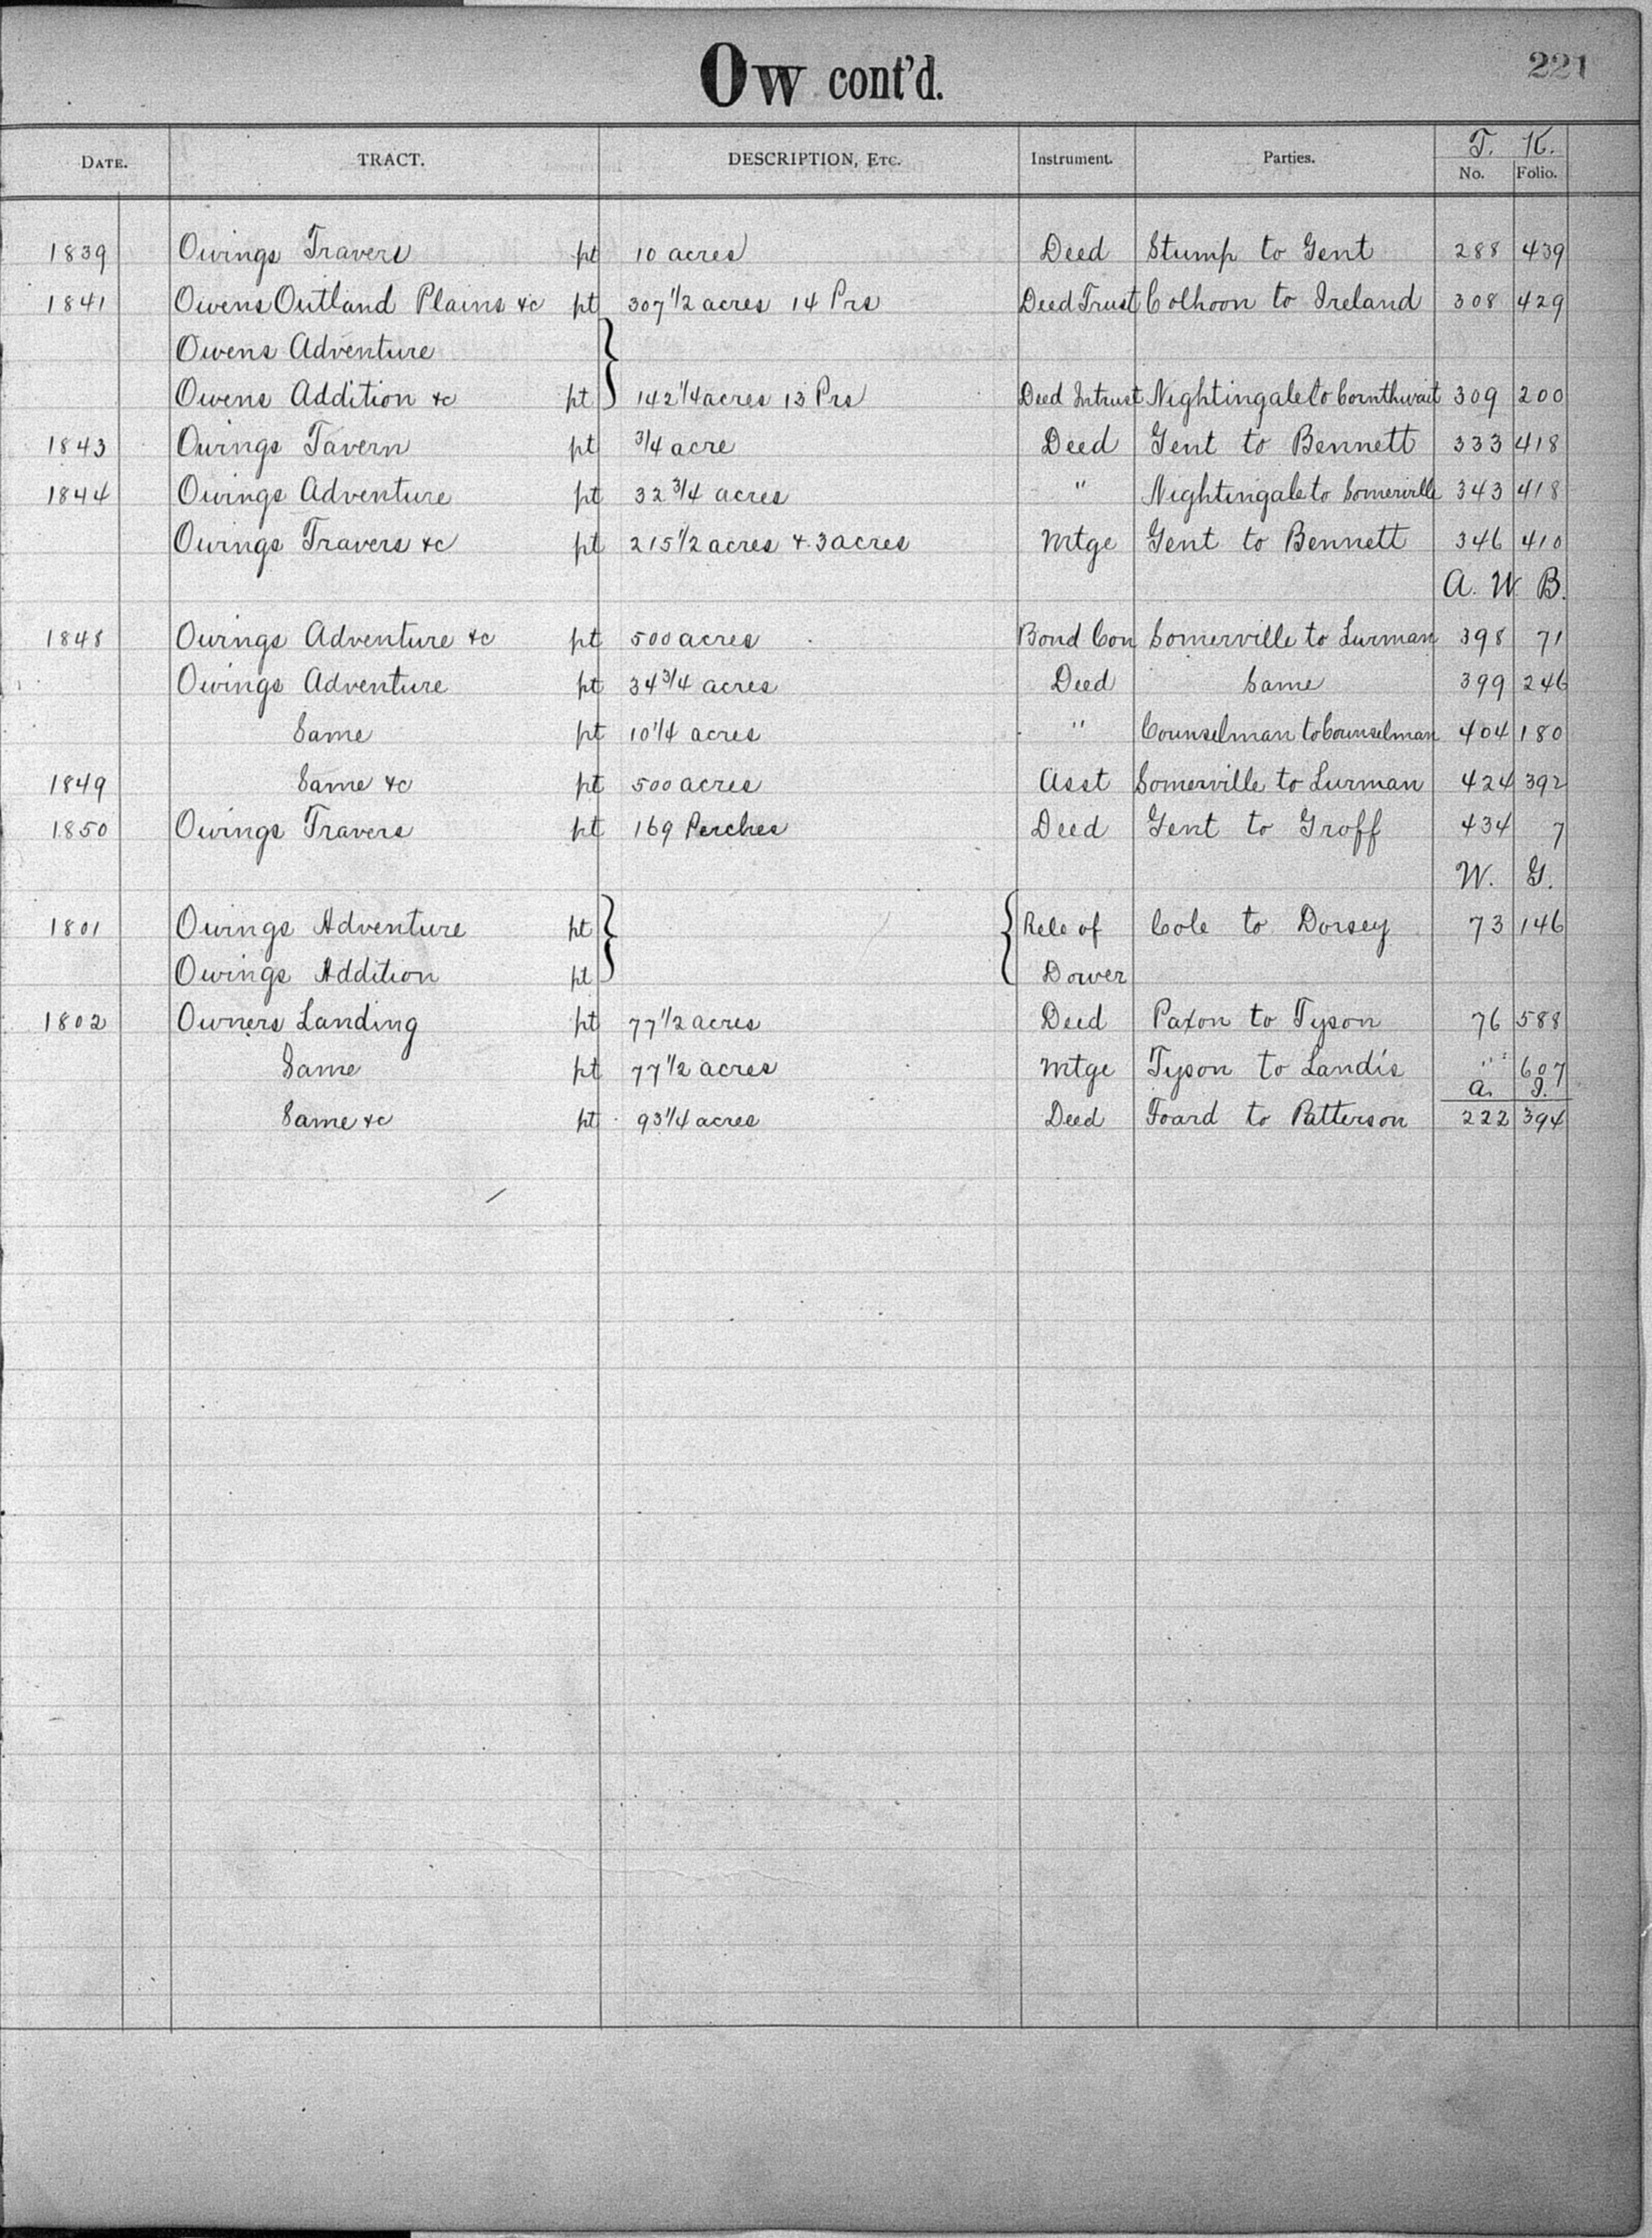 Ow cont'd.
221
DATE. TRACT. DESCRIPTION, ETC. Instrument. Parties. T. K. No. Folio.
1839 Owings Travers pt 10 acres Deed Stump to Gent 288 439
1841 Owens Outland Plains &c pt 307 1/2 acres 14 Prs Deed Trust Colhoon to Ireland 308 429
Owens Adventure
Owens Addition &c pt 142 1/4 acres 13 Prs Deed Intrust Nightingale to Cornthwait 309 200
1843 Owings Tavern pt 3/4 acre Deed Gent to Bennett 333 418
1844 Owings Adventure pt 32 3/4 acres " Nightingale to Somerville 343 418
Owings Travers &c pt 215 1/2 acres & 3 acres Mtge Gent to Bennett 346 410
A. W. B.
1848 Owings Adventure &c pt 500 acres Bond Con Somerville to Lurman 398 71
Owings Adventure pt 34 3/4 acres Deed Same 399 246
Same pt 10 1/4 acres " Counselman to Counselman 404 180
1849 Same &c pt 500 acres Asst Somerville to Lurman 424 392
1850 Owings Travers pt 169 Perches Deed Gent to Groff 434 7
W. G.
1801 Owings Adventure pt Rele of Cole to Dorsey 73 146
Owings Addition pt Dower
1802 Owners Landing pt 77 1/2 acres Deed Paxon to Tyson 76 588
Same pt 77 1/2 acres Mtge Tyson to Landis " 607
A. I.
Same &c pt 93 1/4 acres Deed Foard to Patterson 222 394